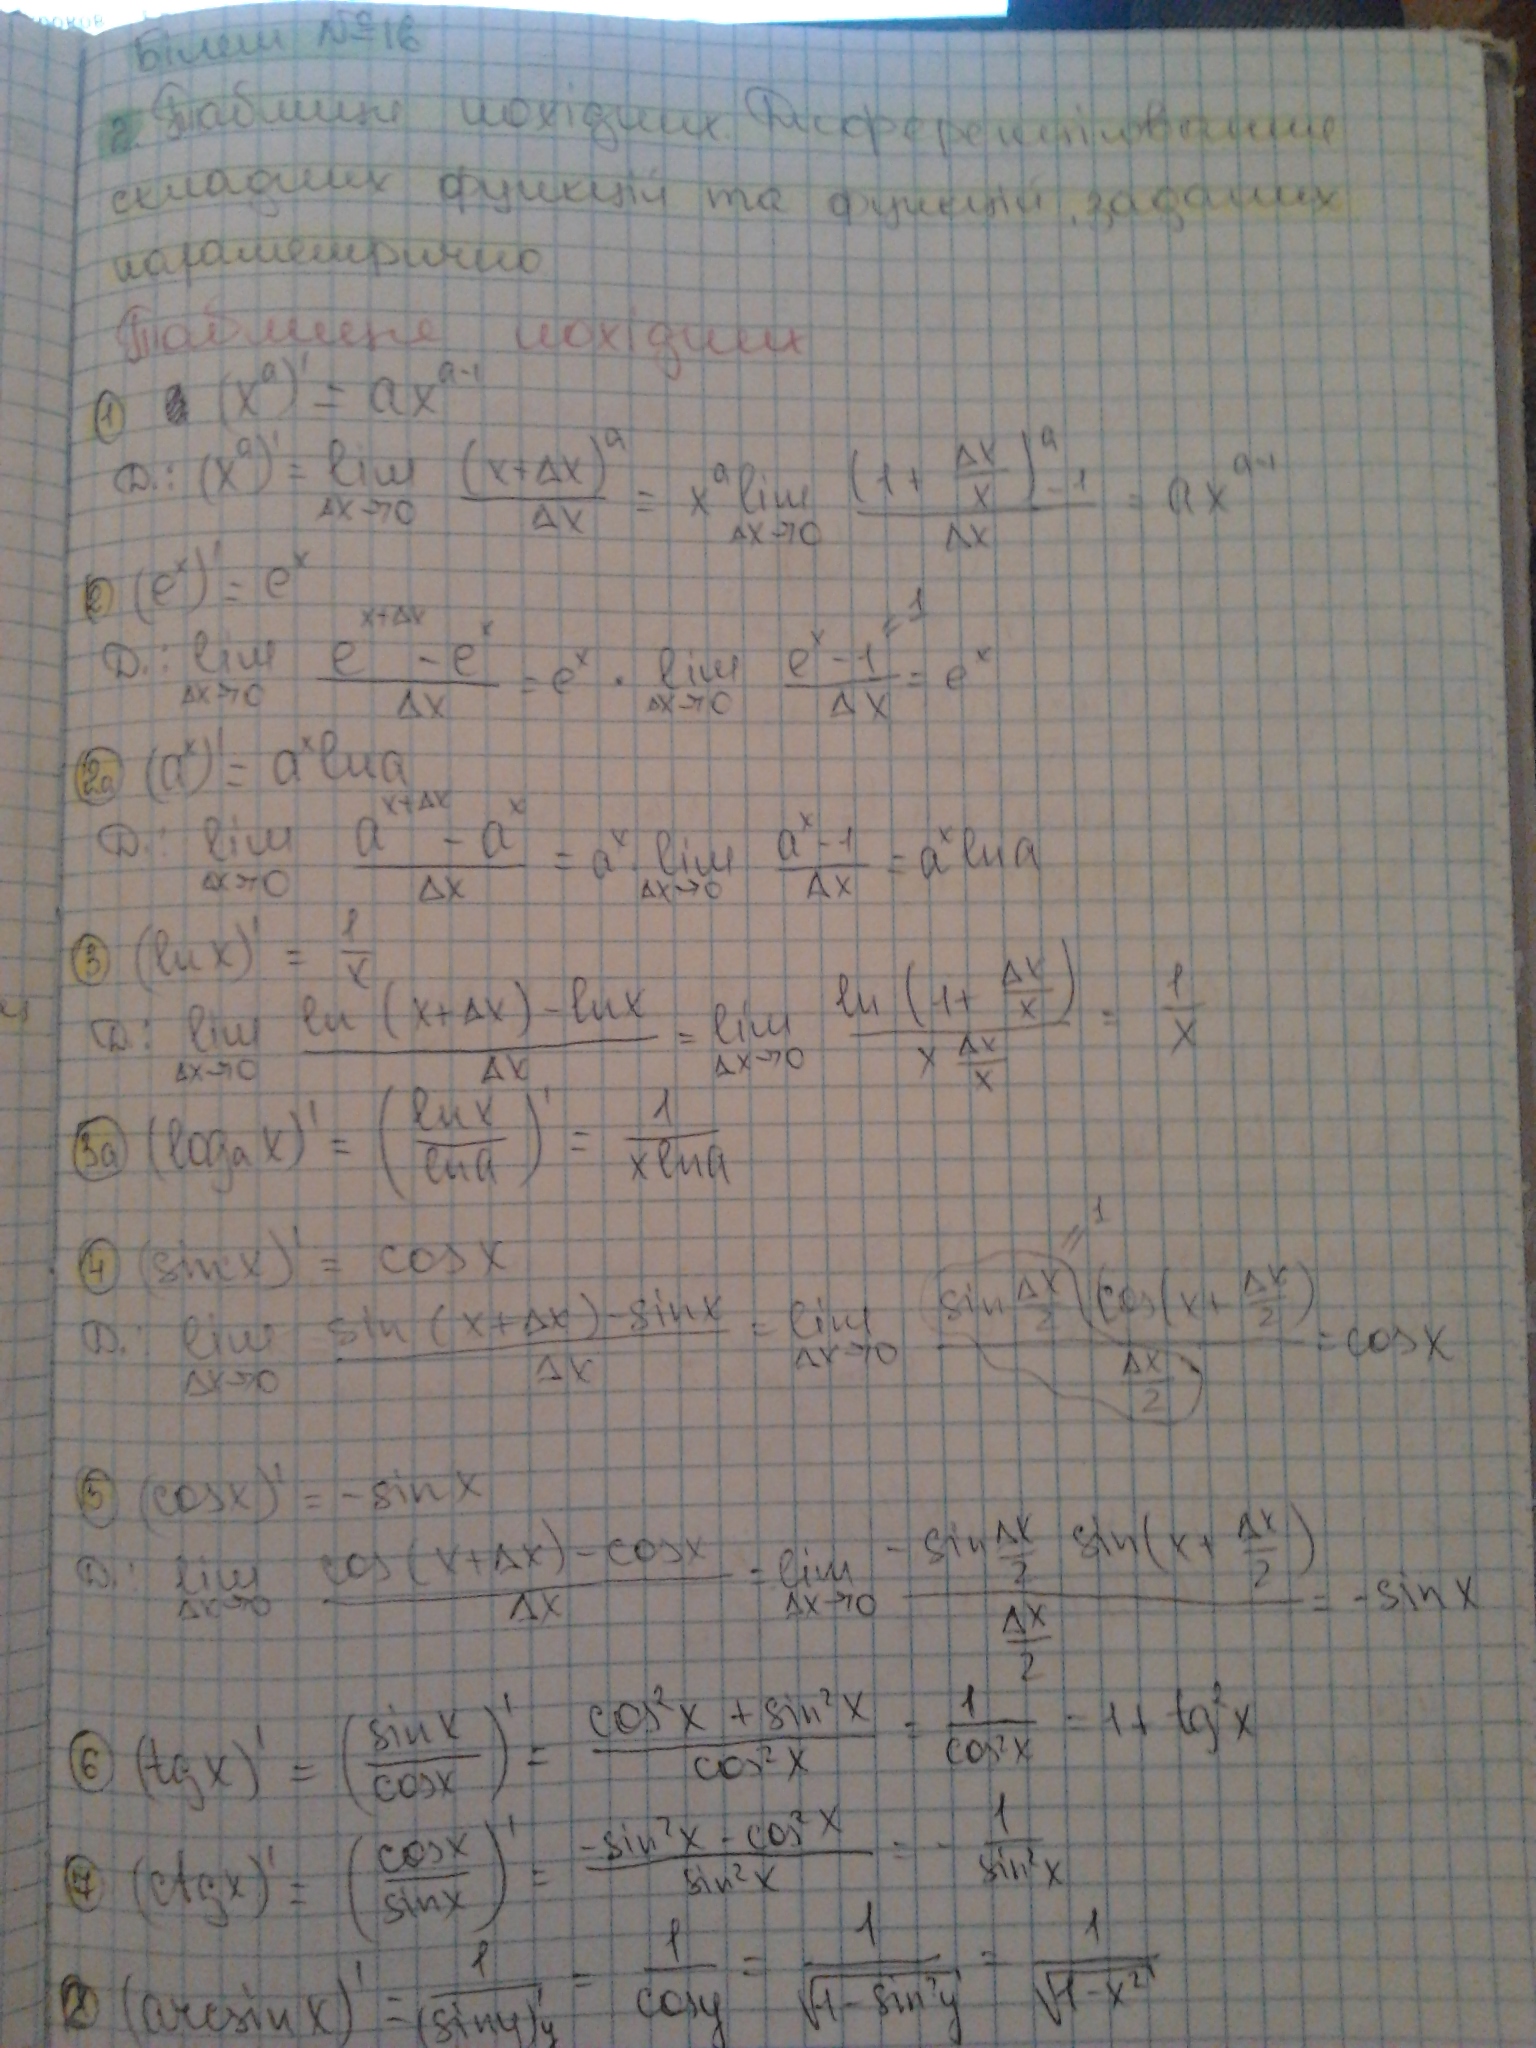 Білет №16
2. Таблиця похідних. Диференціювання
складних функцій та функцій, заданих
параметрично
Таблиця похідних
① (x^a)' = ax^(a-1)
D.: (x^a)' = lim_(Δx→0) (x+Δx)^a / Δx = x^a lim_(Δx→0) ((1 + Δx/x)^a - 1) / Δx = ax^(a-1)
② (e^x)' = e^x
D.: lim_(Δx→0) (e^(x+Δx) - e^x) / Δx = e^x · lim_(Δx→0) (e^x - 1) / Δx (= 1) = e^x
2a (a^x)' = a^x ln a
D.: lim_(Δx→0) (a^(x+Δx) - a^x) / Δx = a^x · lim_(Δx→0) (a^x - 1) / Δx = a^x ln a
③ (ln x)' = 1/x
D.: lim_(Δx→0) (ln (x+Δx) - ln x) / Δx = lim_(Δx→0) ln (1 + Δx/x) / (x Δx/x) = 1/x
3a (log_a x)' = (ln x / ln a)' = 1 / (x ln a)
④ (sin x)' = cos x
D.: lim_(Δx→0) (sin (x+Δx) - sin x) / Δx = lim_(Δx→0) (sin Δx/2 cos(x + Δx/2)) / (Δx/2) (= 1) = cos x
⑤ (cos x)' = - sin x
D.: lim_(Δx→0) (cos (x+Δx) - cos x) / Δx = lim_(Δx→0) (- sin Δx/2 sin(x + Δx/2)) / (Δx/2) = - sin x
⑥ (tg x)' = (sin x / cos x)' = (cos²x + sin²x) / cos²x = 1 / cos²x = 1 + tg²x
⑦ (ctg x)' = (cos x / sin x)' = (-sin²x - cos²x) / sin²x = - 1 / sin²x
⑧ (arcsin x)' = 1 / (sin y)'_y = 1 / cos y = 1 / √(1 - sin²y) = 1 / √(1 - x²)